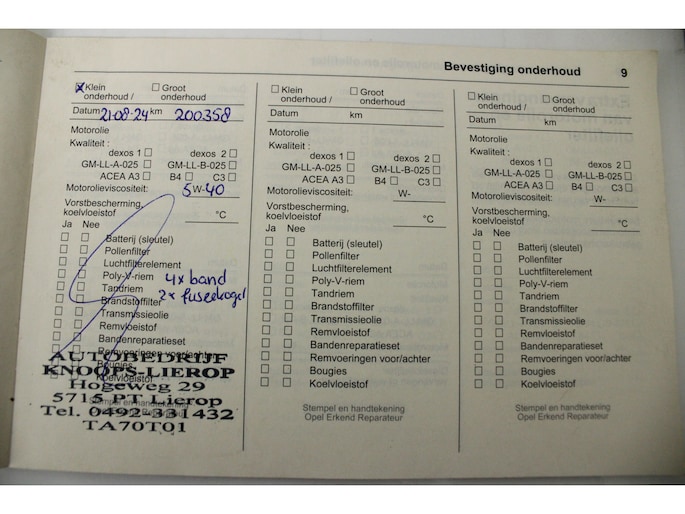 Bevestiging onderhoud 9
Klein onderhoud / Groot onderhoud
Datum 21-08-24 km 200358
Motorolie
Kwaliteit :
dexos 1 dexos 2
GM-LL-A-025 GM-LL-B-025
ACEA A3 B4 C3
Motorolieviscositeit: 5 W- 40
Vorstbescherming,
koelvloeistof °C
Ja Nee
Batterij (sleutel)
Pollenfilter
Luchtfilterelement
Poly-V-riem 4x band
Tandriem 2x fuseekogel
Brandstoffilter
Transmissieolie
Remvloeistof
Bandenreparatieset
Remvoeringen voor/achter
Bougies
Koelvloeistof
Stempel en handtekening
Opel Erkend Reparateur
AUTOBEDRIJF
KNOOPS-LIEROP
Hogeweg 29
5715 PT Lierop
Tel. 0492-331432
TA70T01
Klein onderhoud / Groot onderhoud
Datum km
Motorolie
Kwaliteit :
dexos 1 dexos 2
GM-LL-A-025 GM-LL-B-025
ACEA A3 B4 C3
Motorolieviscositeit: W-
Vorstbescherming,
koelvloeistof °C
Ja Nee
Batterij (sleutel)
Pollenfilter
Luchtfilterelement
Poly-V-riem
Tandriem
Brandstoffilter
Transmissieolie
Remvloeistof
Bandenreparatieset
Remvoeringen voor/achter
Bougies
Koelvloeistof
Stempel en handtekening
Opel Erkend Reparateur
Klein onderhoud / Groot onderhoud
Datum km
Motorolie
Kwaliteit :
dexos 1 dexos 2
GM-LL-A-025 GM-LL-B-025
ACEA A3 B4 C3
Motorolieviscositeit: W-
Vorstbescherming,
koelvloeistof °C
Ja Nee
Batterij (sleutel)
Pollenfilter
Luchtfilterelement
Poly-V-riem
Tandriem
Brandstoffilter
Transmissieolie
Remvloeistof
Bandenreparatieset
Remvoeringen voor/achter
Bougies
Koelvloeistof
Stempel en handtekening
Opel Erkend Reparateur